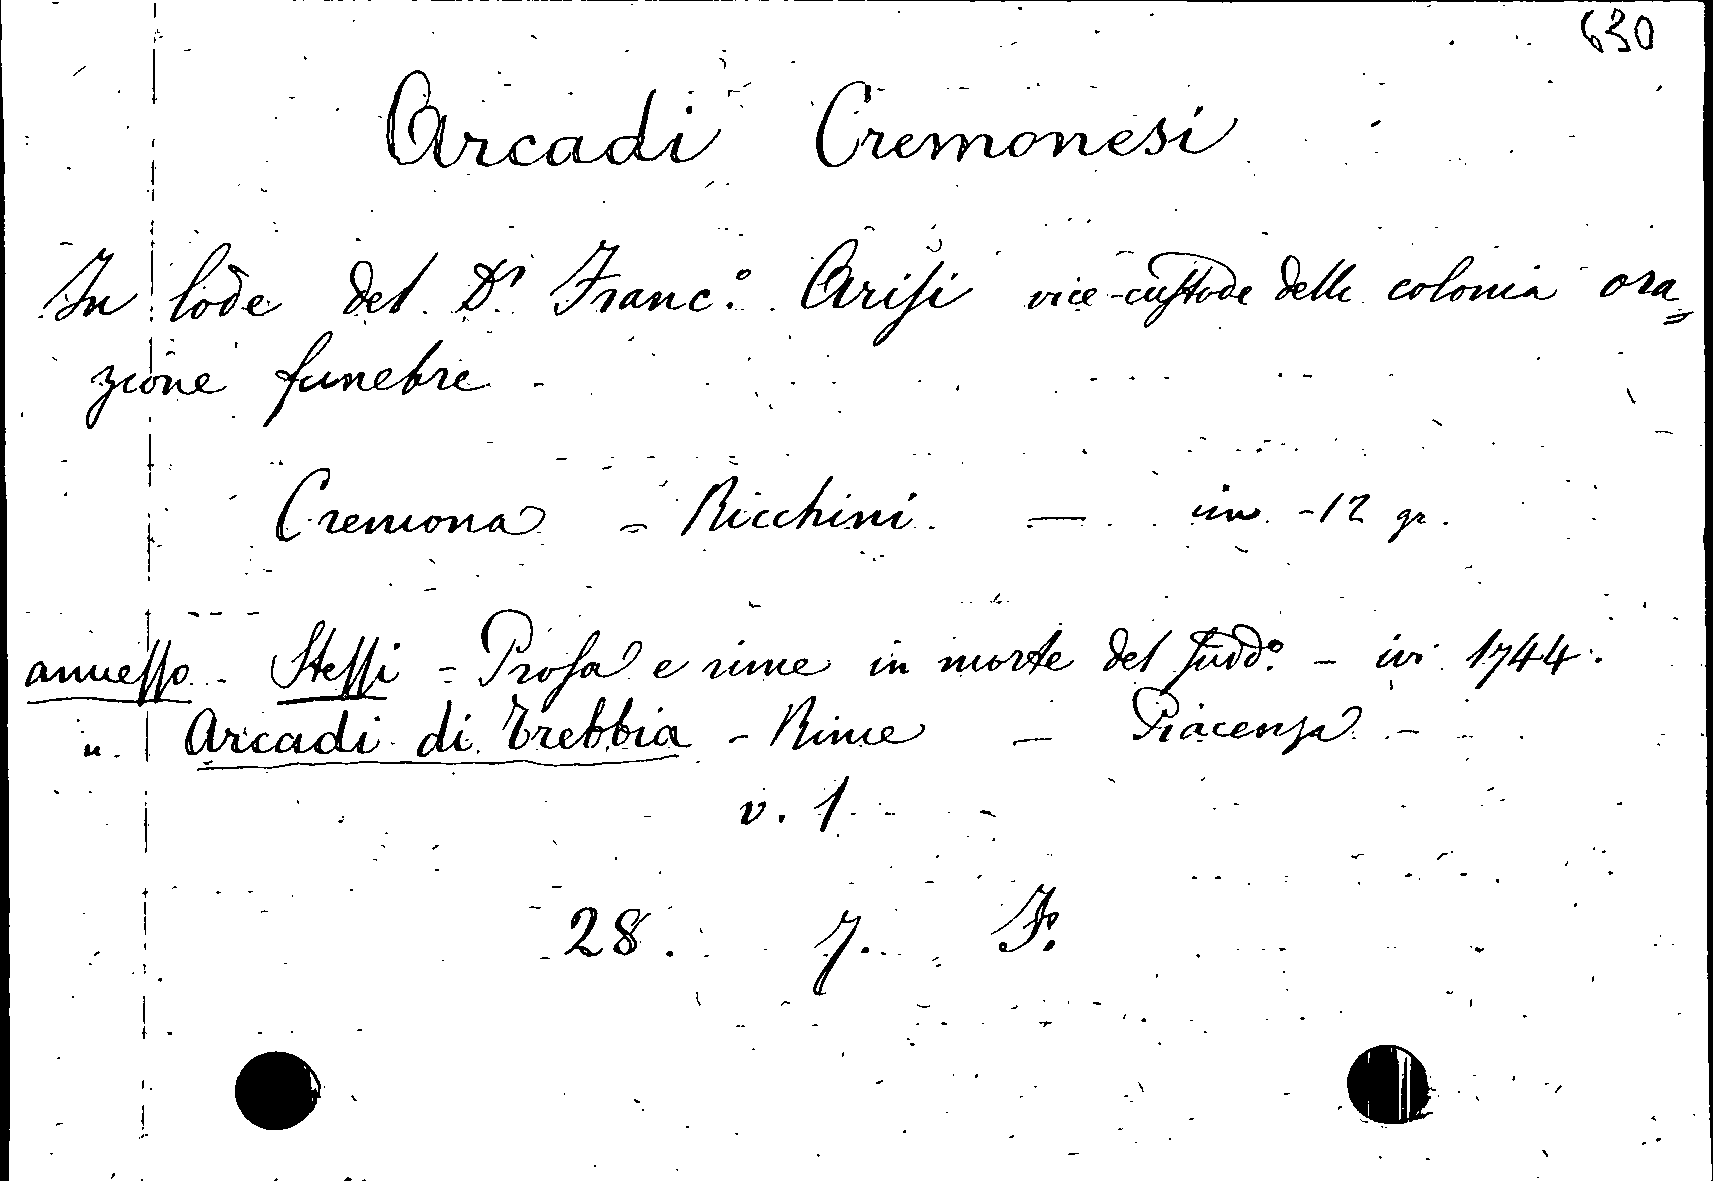 630
Arcadi Cremonesi
In lode del Dr Franc.º Arisi vice-custode della colonia ora=
zione funebre
Cremona - Ricchini — in -12 gr.
annesso - Stessi = Prosa e rime in morte del sudd.º - ivi 1744.
" Arcadi di Trebbia - Rime - Piacenza -
v. 1
28. 7. F.